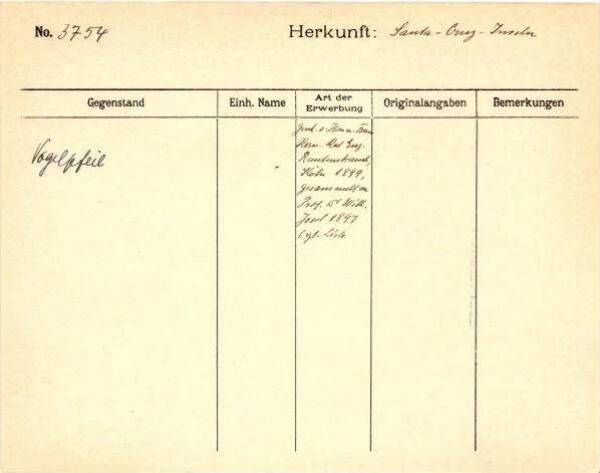 No. 3754
Herkunft: Santa-Cruz-Inseln
Gegenstand
Einh. Name
Art der
Erwerbung
Originalangaben
Bemerkungen
Vogelpfeil
Gesch. v. Herrn u. Frau
Kom. Rat Eug.
Rautenstrauch,
Köln 1899,
gesammelt v.
Prof. Dr Wilh.
Joest 1897
vgl. Liste